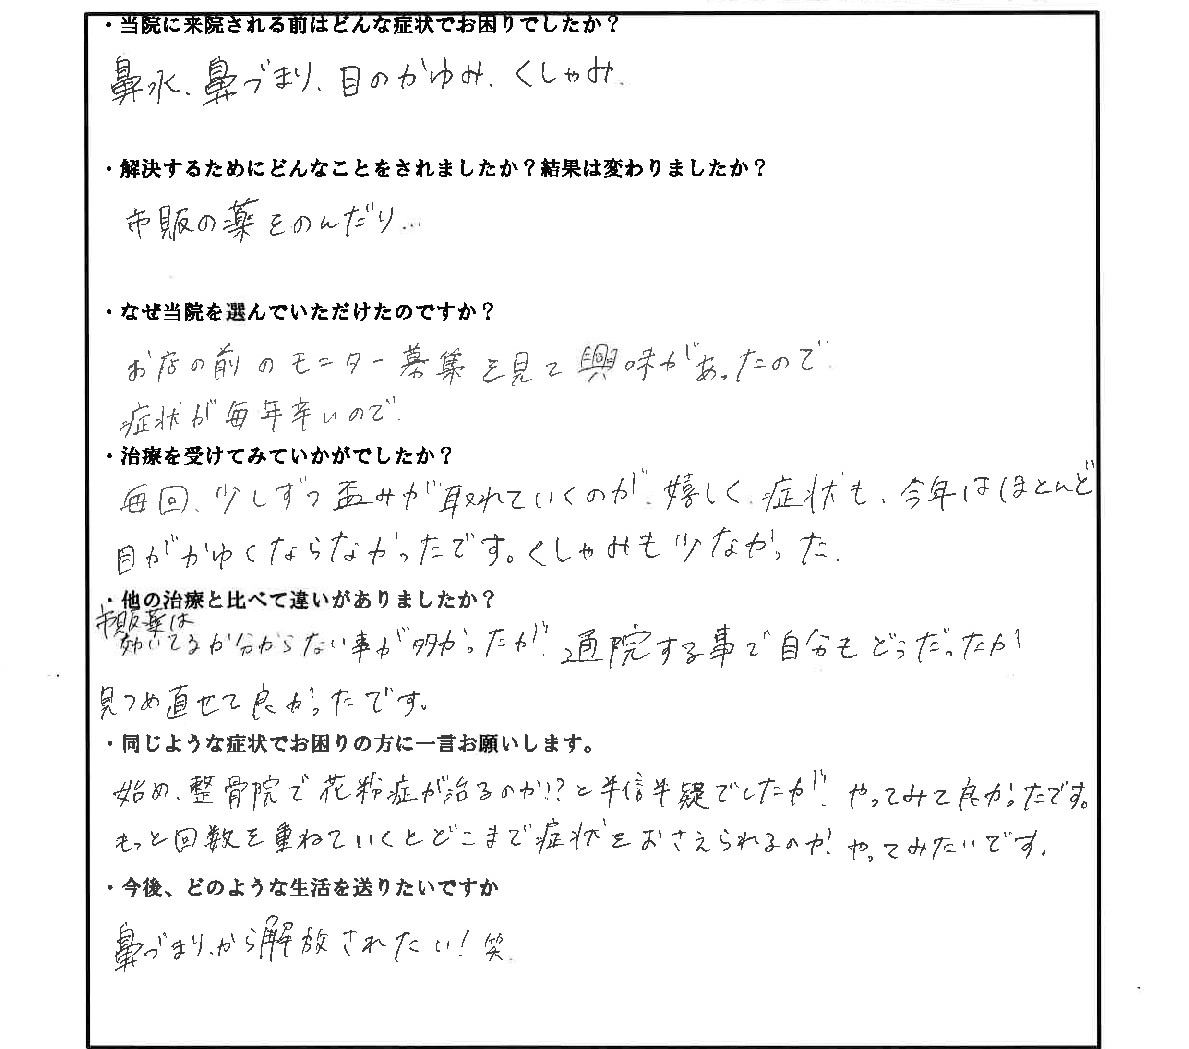 ・当院に来院される前はどんな症状でお困りでしたか？
鼻水、鼻づまり、目のかゆみ、くしゃみ、
・解決するためにどんなことをされましたか？結果は変わりましたか？
市販の薬をのんだり…
・なぜ当院を選んでいただけたのですか？
お店の前のモニター募集を見て興味があったので、
症状が毎年辛いので、
・治療を受けてみていかがでしたか？
毎回、少しずつ歪みが取れていくのが、嬉しく、症状も、今年はほとんど
目がかゆくならなかったです。くしゃみも少なかった、
・他の治療と比べて違いがありましたか？
市販薬は
効いてるか分からない事が多かったが、通院する事で自分もどうだったか
見つめ直せて良かったです。
・同じような症状でお困りの方に一言お願いします。
始め、整骨院で花粉症が治るのか!?と半信半疑でしたが、やってみて良かったです。
もっと回数を重ねていくとどこまで症状をおさえられるのか、やってみたいです、
・今後、どのような生活を送りたいですか
鼻づまりから解放されたい！笑